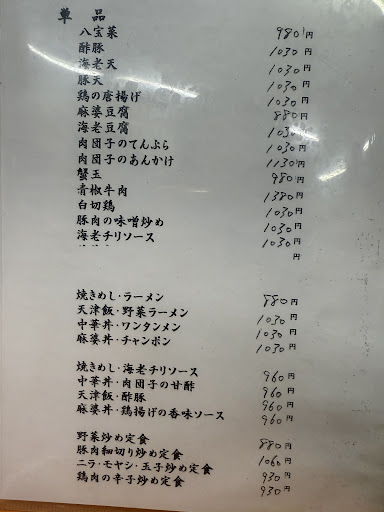 単 品
八宝菜 980円
酢豚 1030円
海老天 1030円
豚天 1030円
鶏の唐揚げ 1030円
麻婆豆腐 880円
海老豆腐 1030円
肉団子のてんぷら 1030円
肉団子のあんかけ 1130円
蟹玉 980円
青椒牛肉 1380円
白切鶏 1030円
豚肉の味噌炒め 1030円
海老チリソース 1030円
円
焼きめし・ラーメン 980円
天津飯・野菜ラーメン 1030円
中華丼・ワンタンメン 1030円
麻婆丼・チャンポン 1030円
焼きめし・海老チリソース 960円
中華丼・肉団子の甘酢 960円
天津飯・酢豚 960円
麻婆丼・鶏揚げの香味ソース 960円
野菜炒め定食 880円
豚肉細切り炒め定食 1060円
ニラ・モヤシ・玉子炒め定食 930円
鶏肉の辛子炒め定食 930円